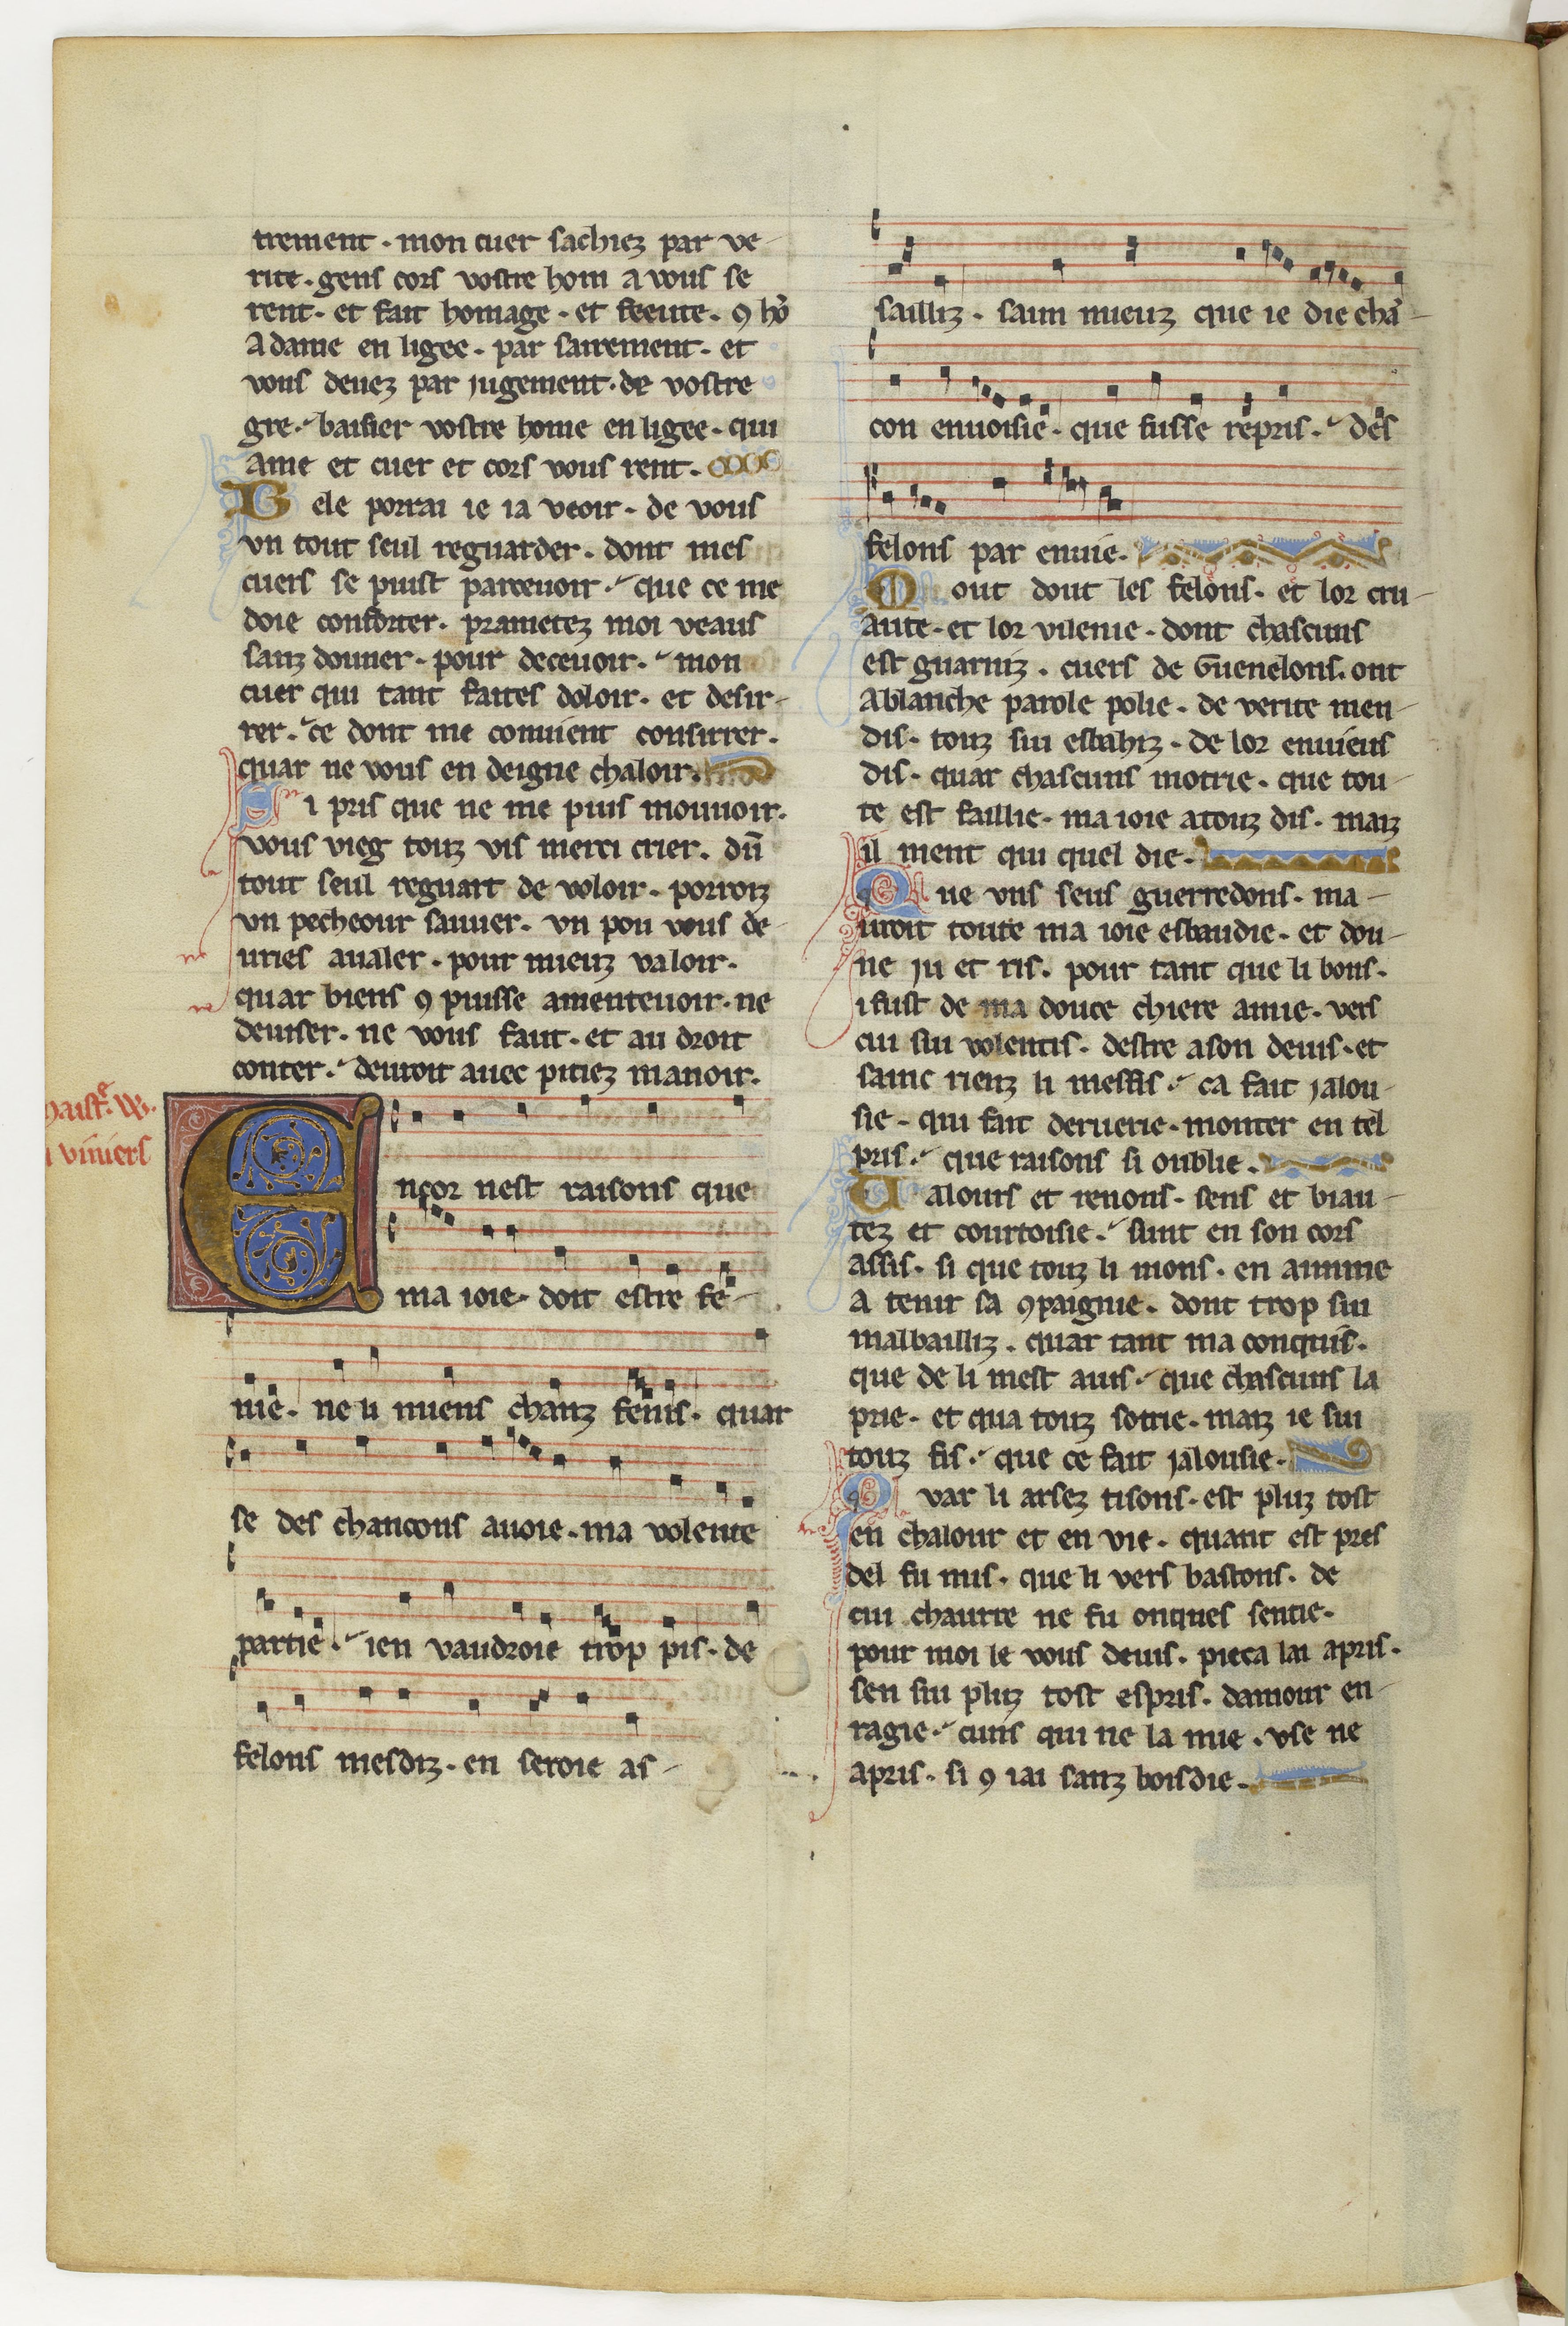 trement · mon cuer sachiez par ve-
rite · gens cors vostre hom a vous se
rent · et fait homage · et feeute · ꝯ hō
a dame en ligee · par sairement · et
vous deuez par jugement · de vostre
gre · baisier vostre home en ligee · qui
ame et cuer et cors vous rent ·
B ele porrai ie ia veoir · de vous
vn tout seul reguarder · dont mes
cuers se puist parceuoir · que ce me
doie conforter · prametez moi veaus
sanz donner · pour deceuoir · mon
cuer qui tant faites doloir · et desir-
rer · ce dont me conuient consirrer ·
quar ne vous en deigne chaloir ·
S i pris que ne me puis mouuoir ·
vous vieg touz vis merci crier · dun̄
tout seul reguart de voloir · porroiz
vn pecheour sauuer · vn pou vous de-
uries aualer · pour mieuz valoir ·
quar biens ꝯ puisse amenteuoir · ne
deuiser · ne vous faut · et au droit
conter · deuroit auec pitiez manoir ·
maistᵉ · W ·
li viniers
E ncor nest raisons que
ma ioie · doit estre fe-
nie · ne li miens chanz fenis · quar
se des chancons auoie · ma volente
partie · ien vaudroie trop pis · de
felons mesdiz · en seroie as-
sailliz · saim mieuz que ie die chā-
con enuoisie · que fusse repris · des
felons par enuie ·
M out dout les felons · et lor cru-
aute · et lor vilenie · dont chascuns
est guarniz · cuers de Guenelons · ont
a blanche parole polie · de verite men-
dis · touz sui esbahiz · de lor enuieus
dis · quar chascuns motrie · que tou-
te est faillie · ma ioie a touz dis · maiz
il ment qui quel die ·
Q ue vns seus guerredons · ma-
uroit toute ma ioie esbaudie · et dou-
ne ju et ris · pour tant que li bons ·
i fust de ma douce chiere amie · vers
cui sui volentis · destre a son deuis · et
sainc rienz li meffis · ca fait jalou-
sie · qui fait deruerie · monter en tel
pris · que raisons si oublie ·
U alours et renons · sens et biau-
tez et courtoisie · sunt en son cors
assis · si que touz li mons · en aimme
a tenir sa ꝯpaignie · dont trop sui
malbailliz · quar tant ma conquis ·
que de li mest auis · que chascuns la
prie · et qua touz sotrie · maiz ie sui
touz fis · que ce fait jalousie ·
Q var li arsez tisons · est pluz tost
en chalour et en vie · quant est pres
del fu mis · que li vers bastons · de
cui chaurre ne fu onques sentie ·
pour moi le vous deuis · pieca lai apris ·
sen sui pluz tost espris · damour en-
ragie · cuns qui ne la mie · vse ne
apris · si ꝯ iai sanz boisdie ·